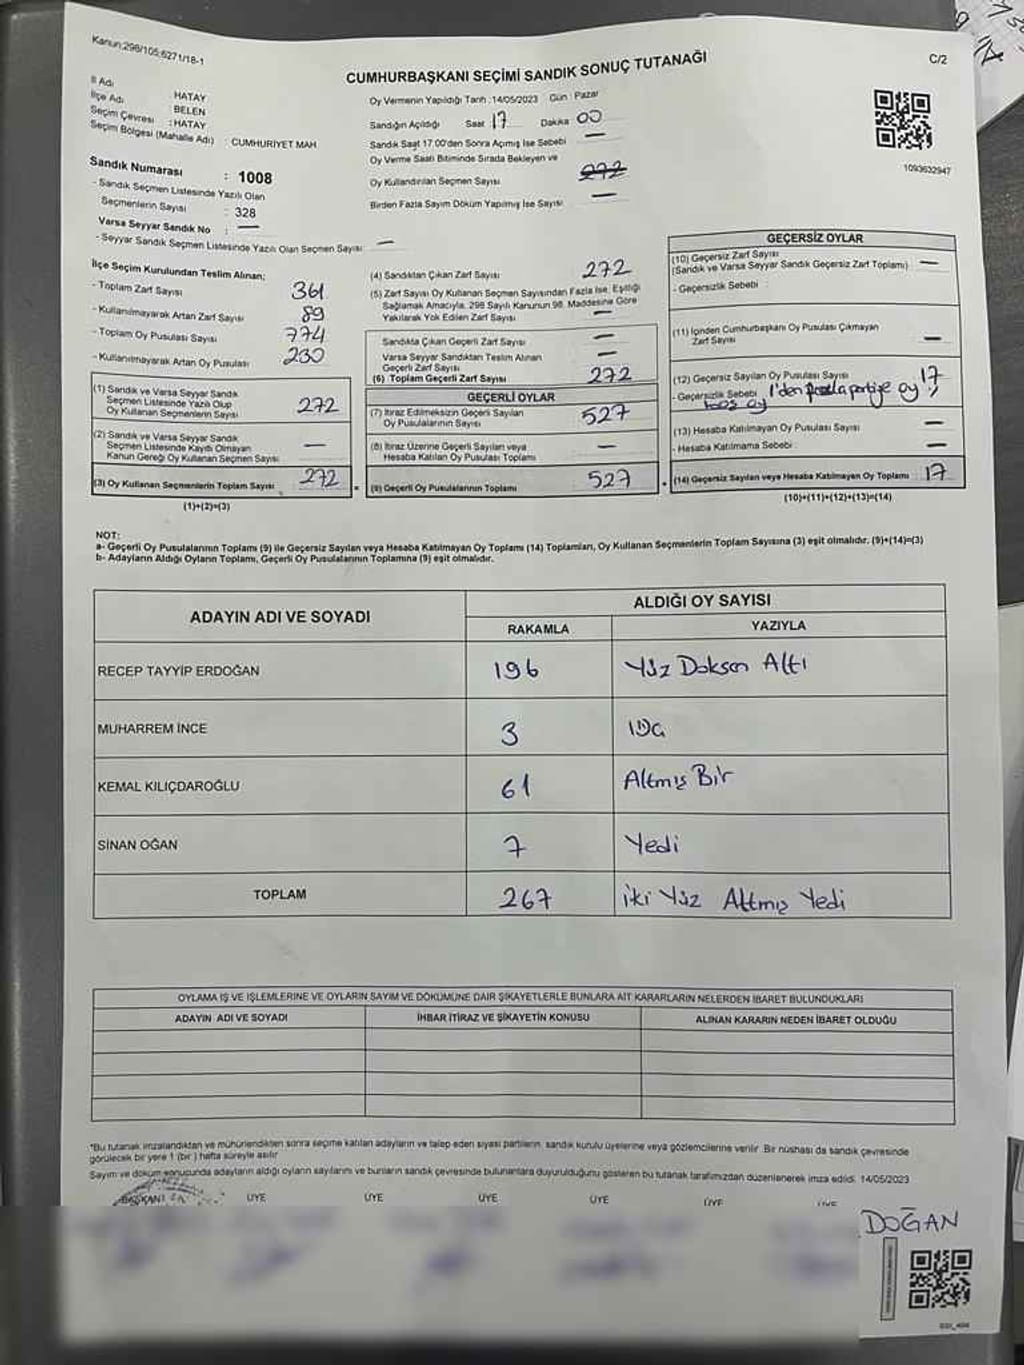 Kanun:298/105;6271/18-1
CUMHURBAŞKANI SEÇİMİ SANDIK SONUÇ TUTANAĞI
C/2
İl Adı HATAY
İlçe Adı BELEN
Seçim Çevresi : HATAY
Seçim Bölgesi (Mahalle Adı) : CUMHURİYET MAH.
Oy Vermenin Yapıldığı Tarih :14/05/2023 Gün : Pazar
Sandığın Açıldığı Saat 17 Dakika 00
Sandık Saat 17.00'den Sonra Açımış İse Sebebi —
Oy Verme Saati Bitiminde Sırada Bekleyen ve
Oy Kullandırılan Seçmen Sayısı 272
Birden Fazla Sayım Döküm Yapılmış İse Sayısı —
1093632947
Sandık Numarası : 1008
- Sandık Seçmen Listesinde Yazılı Olan
Seçmenlerin Sayısı : 328
Varsa Seyyar Sandık No : —
- Seyyar Sandık Seçmen Listesinde Yazılı Olan Seçmen Sayısı: —
İlçe Seçim Kurulundan Teslim Alınan;
- Toplam Zarf Sayısı 361
- Kullanılmayarak Artan Zarf Sayısı 89
- Toplam Oy Pusulası Sayısı 774
- Kullanılmayarak Artan Oy Pusulası 230
(1) Sandık ve Varsa Seyyar Sandık
Seçmen Listesinde Yazılı Olup
Oy Kullanan Seçmenlerin Sayısı 272
(2) Sandık ve Varsa Seyyar Sandık
Seçmen Listesinde Kayıtlı Olmayan
Kanun Gereği Oy Kullanan Seçmen Sayısı —
(3) Oy Kullanan Seçmenlerin Toplam Sayısı 272
(1)+(2)=(3)
(4) Sandıktan Çıkan Zarf Sayısı 272
(5) Zarf Sayısı Oy Kullanan Seçmen Sayısından Fazla İse, Eşitliği
Sağlamak Amacıyla, 298 Sayılı Kanunun 98. Maddesine Göre
Yakılarak Yok Edilen Zarf Sayısı —
Sandıkta Çıkan Geçerli Zarf Sayısı —
Varsa Seyyar Sandıktan Teslim Alınan
Geçerli Zarf Sayısı —
(6) Toplam Geçerli Zarf Sayısı 272
GEÇERLİ OYLAR
(7) İtiraz Edilmeksizin Geçerli Sayılan
Oy Pusulasının Sayısı 527
(8) İtiraz Üzerine Geçerli Sayılan veya
Hesaba Katılan Oy Pusulası Toplamı —
(9) Geçerli Oy Pusulalarının Toplamı 527
GEÇERSİZ OYLAR
(10) Geçersiz Zarf Sayısı
(Sandık ve Varsa Seyyar Sandık Geçersiz Zarf Toplamı) —
- Geçersizlik Sebebi :
(11) İçinden Cumhurbaşkanı Oy Pusulası Çıkmayan
Zarf Sayısı —
(12) Geçersiz Sayılan Oy Pusulası Sayısı 17
- Geçersizlik Sebebi 1'den fazla partiye oy,
boş oy
(13) Hesaba Katılmayan Oy Pusulası Sayısı —
- Hesaba Katılmama Sebebi : —
(14) Geçersiz Sayılan veya Hesaba Katılmayan Oy Toplamı 17
(10)+(11)+(12)+(13)=(14)
NOT:
a- Geçerli Oy Pusulalarının Toplamı (9) ile Geçersiz Sayılan veya Hesaba Katılmayan Oy Toplamı (14) Toplamları, Oy Kullanan Seçmenlerin Toplam Sayısına (3) eşit olmalıdır. (9)+(14)=(3)
b- Adayların Aldığı Oyların Toplamı, Geçerli Oy Pusulalarının Toplamına (9) eşit olmalıdır.
ADAYIN ADI VE SOYADI
ALDIĞI OY SAYISI
RAKAMLA YAZIYLA
RECEP TAYYİP ERDOĞAN 196 Yüz Doksan Altı
MUHARREM İNCE 3 Üç
KEMAL KILIÇDAROĞLU 61 Altmış Bir
SİNAN OĞAN 7 Yedi
TOPLAM 267 iki Yüz Altmış Yedi
OYLAMA İŞ VE İŞLEMLERİNE VE OYLARIN SAYIM VE DÖKÜMÜNE DAİR ŞİKAYETLERLE BUNLARA AİT KARARLARIN NELERDEN İBARET BULUNDUKLARI
ADAYIN ADI VE SOYADI İHBAR İTİRAZ VE ŞİKAYETİN KONUSU ALINAN KARARIN NEDEN İBARET OLDUĞU
*Bu tutanak imzalandıktan ve mühürlendikten sonra seçime katılan adayların ve talep eden siyasi partilerin, sandık kurulu üyelerine veya gözlemcilerine verilir. Bir nüshası da sandık çevresinde
görülecek bir yere 1 (bir) hafta süreyle asılır.
Sayım ve döküm sonucunda adayların aldığı oyların sayılarını ve bunların sandık çevresinde bulunanlara duyurulduğunu gösteren bu tutanak tarafımızdan düzenlenerek imza edildi. 14/05/2023
BAŞKAN ÜYE ÜYE ÜYE ÜYE ÜYE ÜYE
DOĞAN